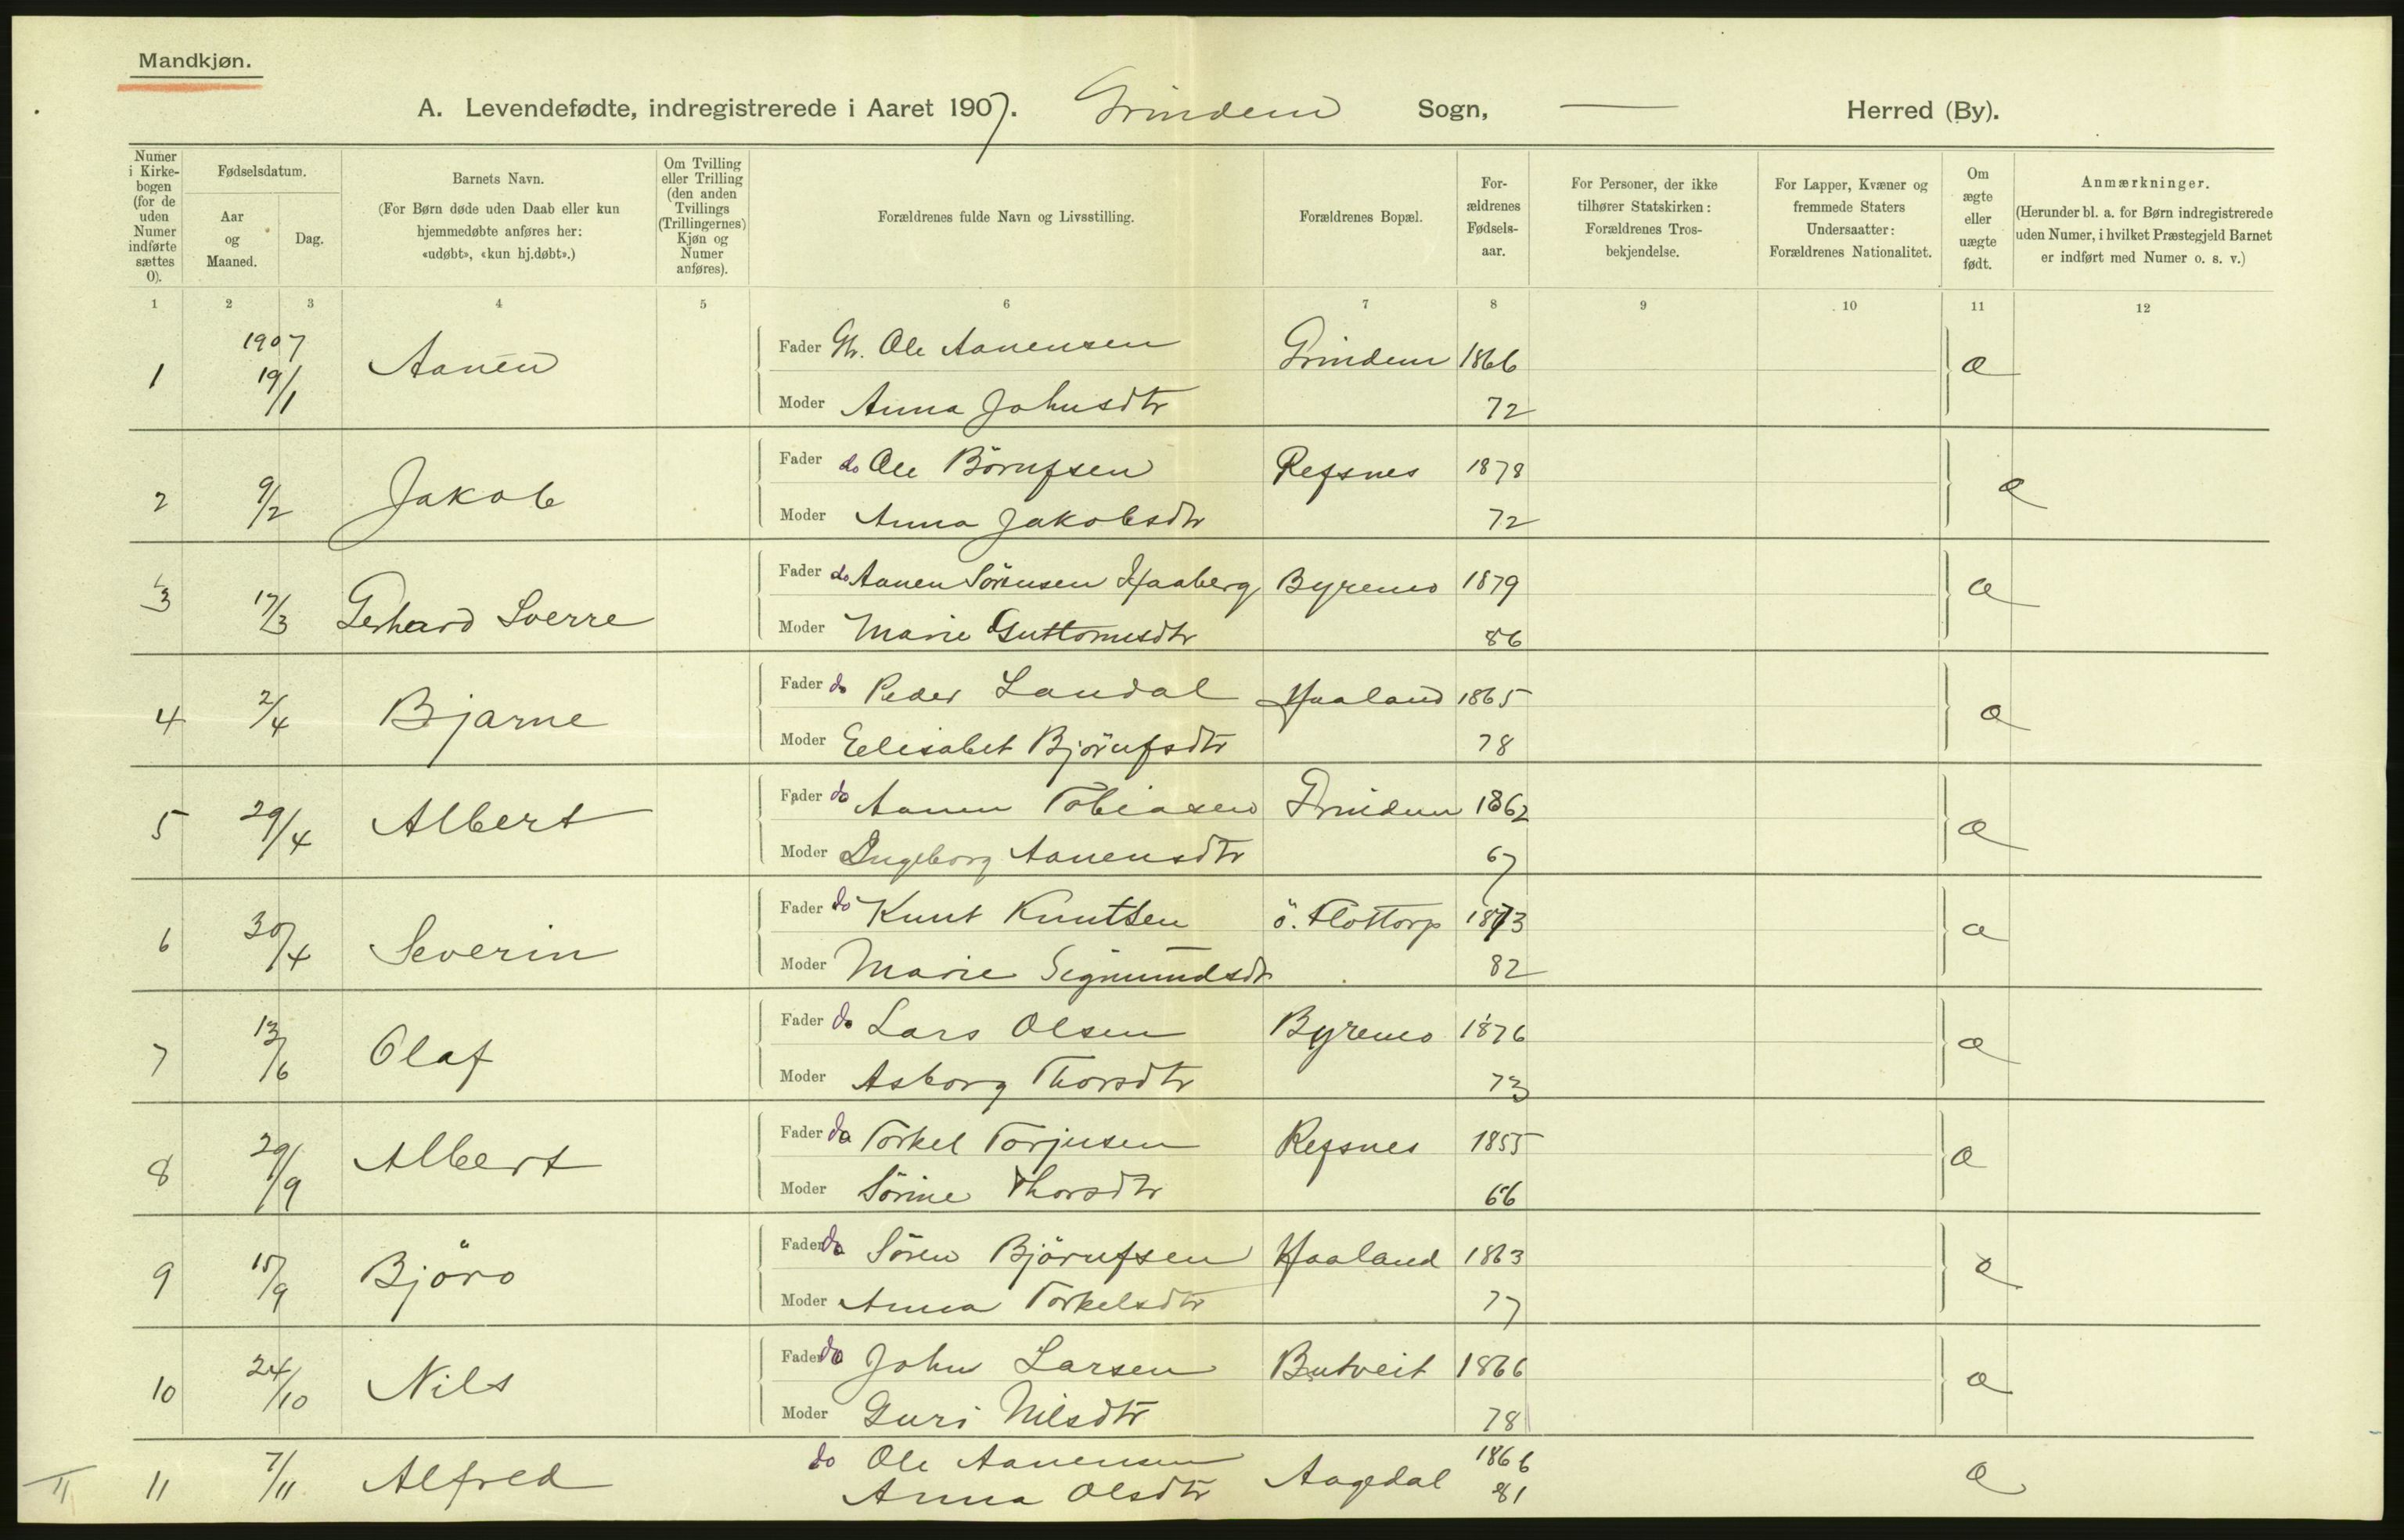 Mandkjøn.
A. Levendefødte, indregistrerede i Aaret 1907. Grindem Sogn, — Herred (By).
Numer i Kirkebogen (for de uden Numer indførte sættes 0).
Fødselsdatum.
Aar og Maaned.
Dag.
Barnets Navn.
(For Børn døde uden Daab eller kun hjemmedøbte anføres her: «udøbt», «kun hj.døbt».)
Om Tvilling eller Trilling (den anden Tvillings (Trillingernes) Kjøn og Numer anføres).
Forældrenes fulde Navn og Livsstilling.
Forældrenes Bopæl.
Forældrenes Fødselsaar.
For Personer, der ikke tilhører Statskirken: Forældrenes Trosbekjendelse.
For Lapper, Kvæner og fremmede Staters Undersaatter: Forældrenes Nationalitet.
Om ægte eller uægte født.
Anmærkninger.
(Herunder bl. a. for Børn indregistrerede uden Numer, i hvilket Præstegjeld Barnet er indført med Numer o. s. v.)
1 2 3 4 5 6 7 8 9 10 11 12
1907
1 19/1 Aanen Fader Gr. Ole Aanensen Grindem 1866 æ
Moder Anna Johnsdtr 72
2 9/2 Jakob Fader do Ole Börnfsen Refsnes 1878 æ
Moder Anna Jakobsdtr 72
3 17/3 Gerhard Sverre Fader do Aanen Sörensen Haaberg Byremo 1879 æ
Moder Marie Guttormsdtr 86
4 2/4 Bjarne Fader do Peder Laudal Haaland 1865 æ
Moder Eelisabet Björnfsdtr 78
5 29/4 Albert Fader do Aanen Tobiasen Grindem 1862 æ
Moder Ingeborg Aanensdtr 67
6 30/4 Severin Fader do Knut Knutsen ö. Flottorp 1873 æ
Moder Marie Sigmundsdtr 82
7 13/6 Olaf Fader do Lars Olsen Byremo 1876 æ
Moder Asborg Thorsdtr 73
8 29/9 Albert Fader do Torkel Torjusen Refsnes 1855 æ
Moder Sörine Thorsdtr 66
9 15/9 Björo Fader do Sören Björnfsen Haaland 1863 æ
Moder Anna Torkelsdtr 77
10 24/10 Nils Fader do John Larsen Butveit 1866 æ
Moder Guri Nilsdtr 78
11 7/11 Alfred do Ole Aanensen Aagedal 1866 æ
Anna Olsdtr 81